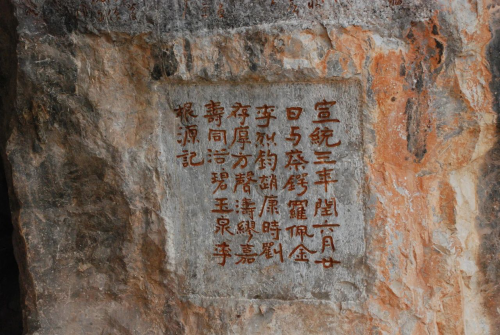 宣統三年閏六月廿
日与蔡鍔羅佩金
李烈鈞胡康時劉
存厚方聲濤繆嘉
壽同浴碧玉泉李
根源記